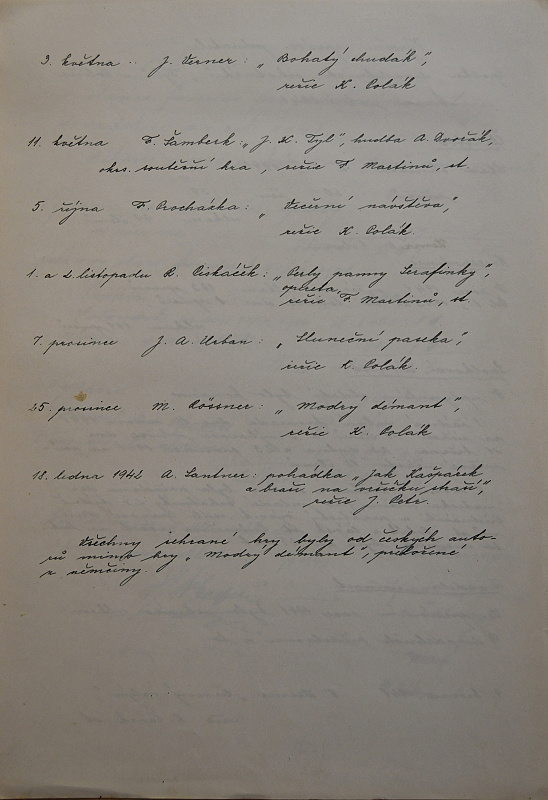 3. května .. J. Verner: „Bohatý chudák",
režie K. Polák
11. května F. Šamberk: „J. K. Tyl", hudba A. Dvořák,
okrs. soutěžní hra, režie F. Martinů, st.
5. října F. Procházka: „Večerní návštěva",
režie K. Polák.
1. a 2. listopadu R. Piskáček: „Perly panny Serafinky",
opereta,
režie F. Martinů, st.
7. prosince J. A. Urban: „Sluneční paseka",
režie K. Polák.
25. prosince M. Rössner: „Modrý démant",
režie K. Polák
18. ledna 1942 A. Santner: pohádka „Jak Kašpárek
a bráu na vršíčku straší",
režie J. Petr.
Všechny sehrané hry byly od českých auto-
rů mimo hry „Modrý démant", přeložené
z němčiny.